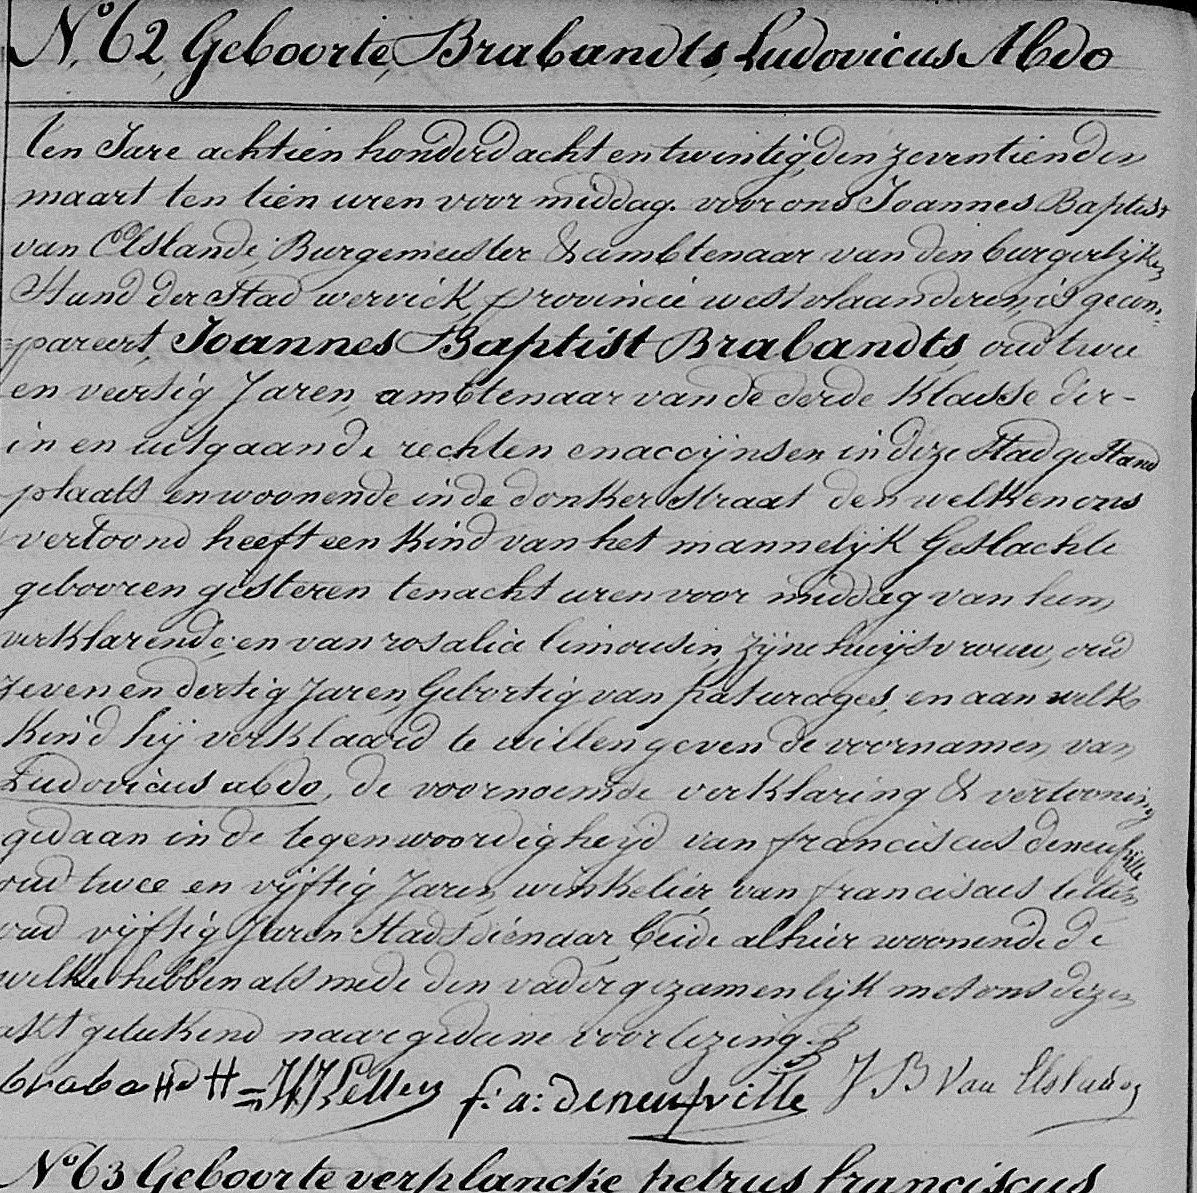 N.º 62, Geboorte, Brabandts, Ludovicus Abdo
ten Jare achtien honderd acht en twintig, den zeventienden
maart ten tien uren voor middag. voor ons Joannes Baptist
van Elslande, Burgemeester & ambtenaar van den burgerlijken
Stand der Stad wervick, provincie westvlaanderen, is gecom=
=pareert, Joannes Baptist Brabandts, oud twee
en veertig Jaren, ambtenaar van de derde Klasse der-
in en uitgaande rechten en accijnsen in dize Stad ge Stand
plaats en woonende in de donker straat den welken ons
vertoond heeft een kind van het mannelijk Geslachte
gebooren gisteren ten acht uren voor middag van hem
verklarende, en van rosalia limousin, zijne huijsvrouw, oud
zeven en dertig Jaren, Gebortig van paturages, en aan welk
Kind hij verklaard te willen geven de voornamen van
Ludovicus abdo, de voornoemde verklaring & vertooning
gedaan in de tegenwoordigheijd van franciscus deneufville
oud twee en vijftig Jaren, winkelier, van franciscus letten
oud vijftig Jaren Stadsdienaar, beide alhier woonende de
welke hebben als mede den vader gezamenlijk met ons dezen
akt geteekend naar gedaene voorlezing.
brabandt = F J Letten f: a: Deneufville J B Van Elslande
Nº 63 Geboorte verplancke petrus franciscus